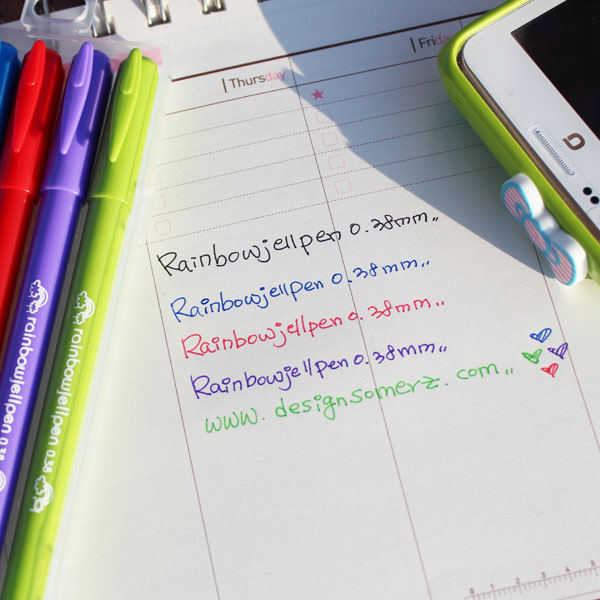 Thursday
Friday
Rainbowjellpen 0.38mm,,
Rainbowjellpen 0.38mm,,
Rainbowjellpen 0.38mm,,
Rainbowjellpen 0.38mm,,
www.designsomerz.com,,
rainbowjellpen 0.38
rainbowjellpen 0.38
0 1 2 3 4 5